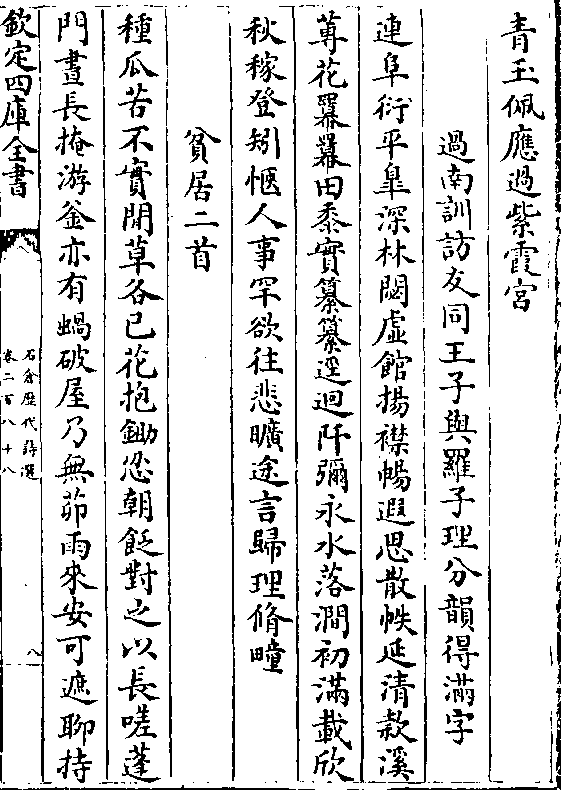 青玉佩應過紫霞宮
過南訓訪友同王子與羅子理分韻得滿字
連阜衍平臯深林閟虛館揚襟暢遐思散帙延清款溪
蓴花羃羃田黍實纂纂逕迴阡彌永水落澗初滿載欣
秋稼登矧愜人事罕欲往悲曠途言歸理脩疃
貧居二首
種瓜苦不實閒草各已花抱鋤忍朝飢對之以長嗟蓬
門晝長掩游釡亦有蝸破屋乃無茆雨來安可遮聊持
欽定四庫全書
石倉歷代詩選
卷二百八十八
八